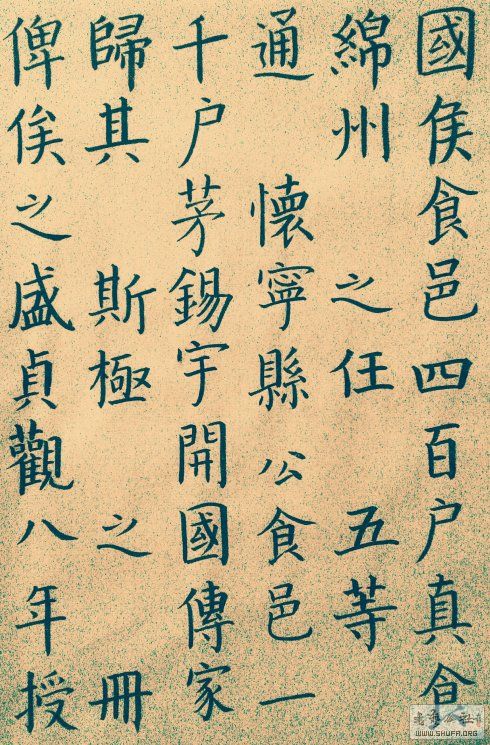 國侯食邑四百户真食
綿州 之任 五等
通 懷寧縣 公食邑一
千户茅錫宇開國傳家
歸其 斯極 之冊
俾侯之盛貞觀八年授
WWW.SHUFA.ORG